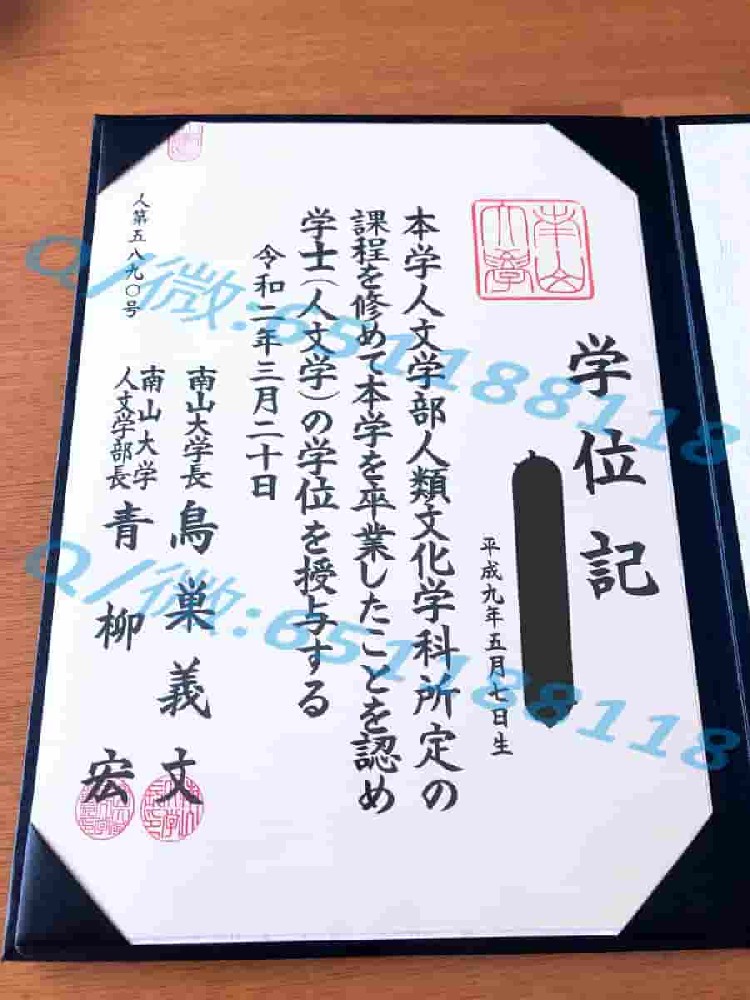 学位記
平成九年五月七日生
本学人文学部人類文化学科所定の
課程を修めて本学を卒業したことを認め
学士(人文学)の学位を授与する
令和二年三月二十日
南山大学長 鳥巣義文
南山大学
人文学部長 青柳宏
人第五八九〇号
南山
大学
Q/微:651188118
Q/微:651188118